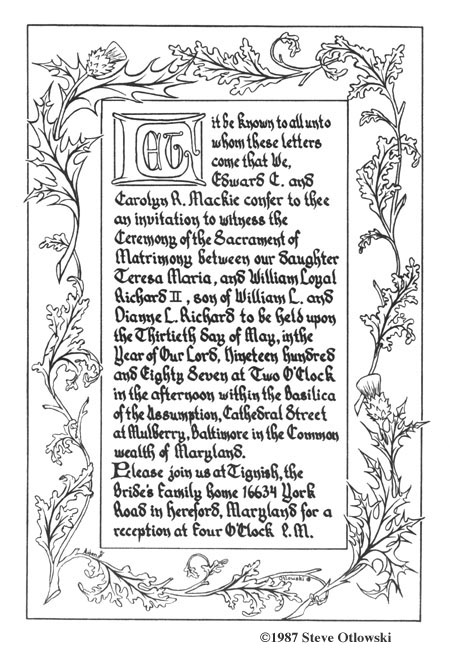 Let it be known to all unto
whom these letters
come that We,
Edward C. and
Carolyn R. Mackie confer to thee
an invitation to witness the
Ceremony of the Sacrament of
Matrimony between our daughter
Teresa Maria, and William Loyal
Richard II, son of William L. and
Dianne L. Richard to be held upon
the Thirtieth day of May, in the
Year of Our Lord, Nineteen hundred
and Eighty Seven at Two O'Clock
in the afternoon within the Basilica
of the Assumption, Cathedral Street
at Mulberry, Baltimore in the Common
wealth of Maryland.
Please join us at Tignish, the
Bride's Family home 16634 York
Road in Hereford, Maryland for a
reception at Four O'Clock P.M.
Otlowski
©1987 Steve Otlowski